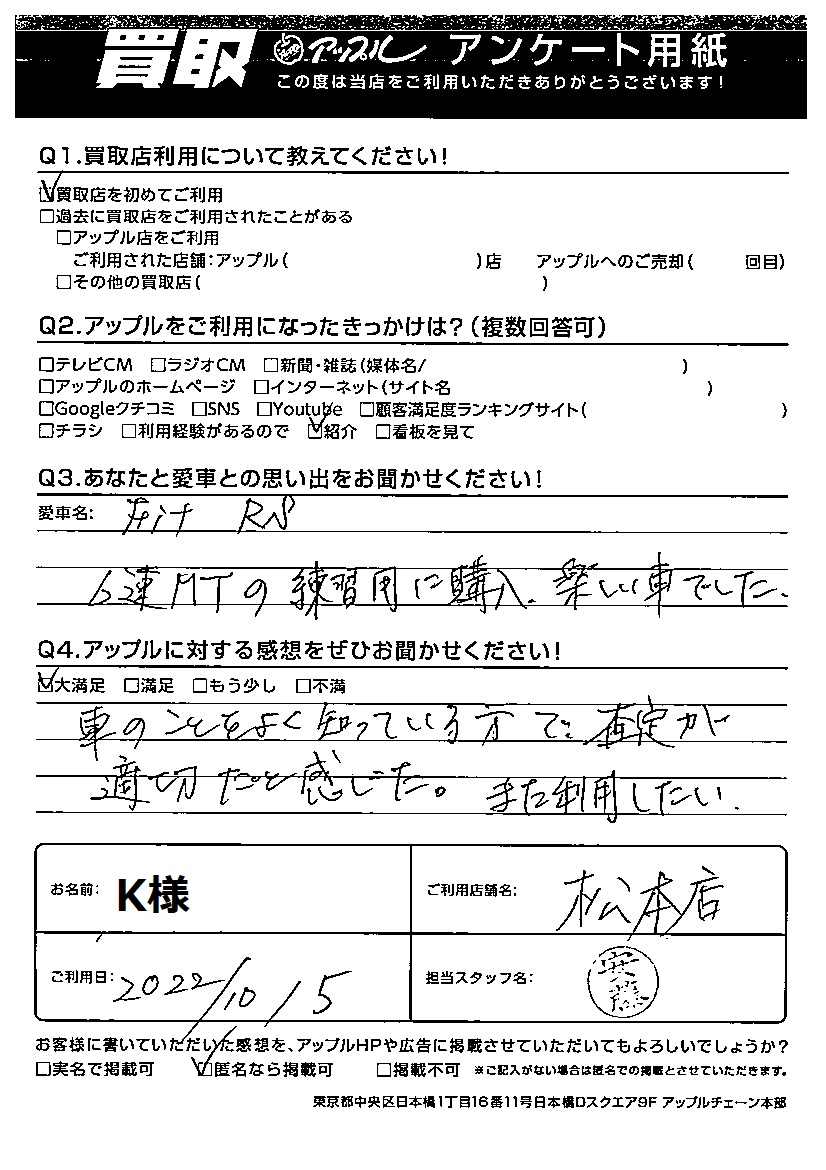 買取 アップル アンケート用紙
この度は当店をご利用いただきありがとうございます!
Q1.買取店利用について教えてください!
☑買取店を初めてご利用
□過去に買取店をご利用されたことがある
□アップル店をご利用
ご利用された店舗:アップル( )店 アップルへのご売却( 回目)
□その他の買取店( )
Q2.アップルをご利用になったきっかけは?(複数回答可)
□テレビCM □ラジオCM □新聞・雑誌(媒体名/ )
□アップルのホームページ □インターネット(サイト名 )
□Googleクチコミ □SNS □Youtube □顧客満足度ランキングサイト( )
□チラシ □利用経験があるので ☑紹介 □看板を見て
Q3.あなたと愛車との思い出をお聞かせください!
愛車名: フィット RS
6速MTの練習用に購入、楽しい車でした。
Q4.アップルに対する感想をぜひお聞かせください!
☑大満足 □満足 □もう少し □不満
車のことをよく知っている方で、査定が
適切だと感じた。また利用したい。
お名前: K様 ご利用店舗名: 松本店
ご利用日: 2022/10/5 担当スタッフ名: 安藤
お客様に書いていただいた感想を、アップルHPや広告に掲載させていただいてもよろしいでしょうか?
□実名で掲載可 ☑匿名なら掲載可 □掲載不可 ※ご記入がない場合は匿名での掲載とさせていただきます。
東京都中央区日本橋1丁目16番11号日本橋Dスクエア9F アップルチェーン本部